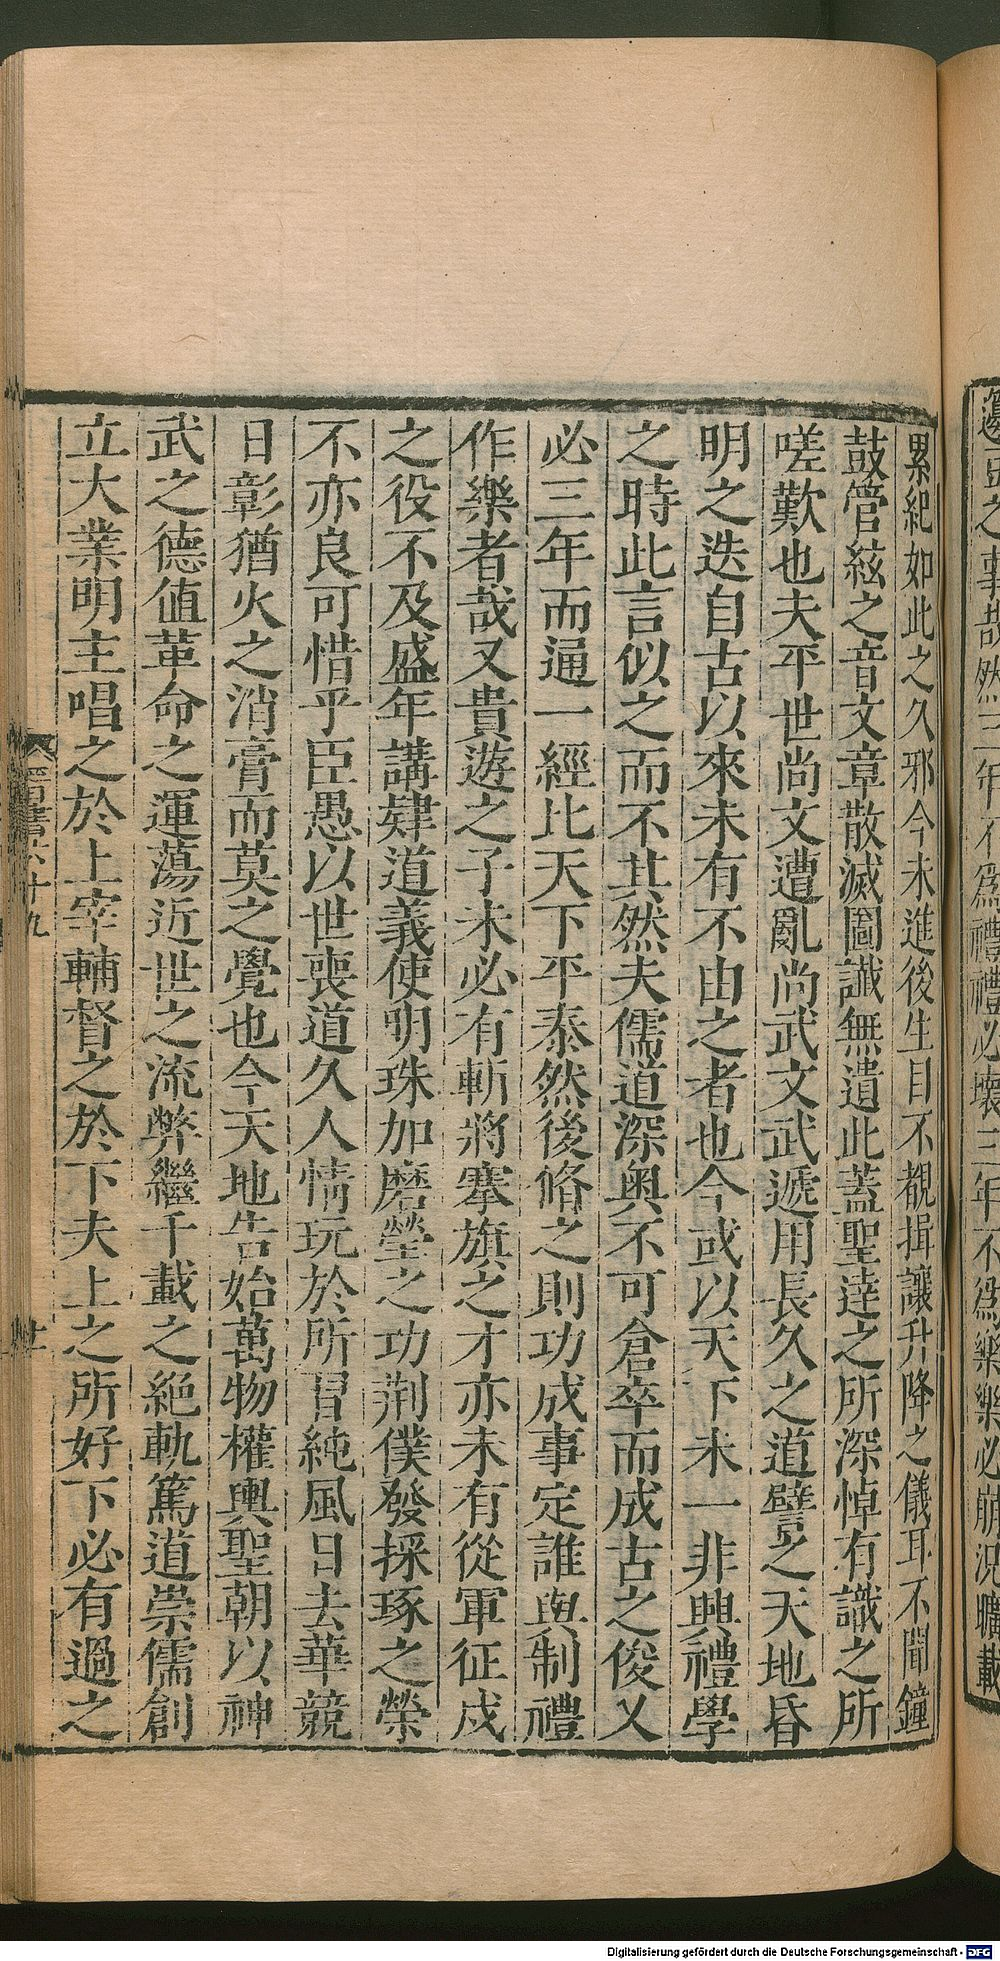 邊亟之事哉然三年不爲禮禮必壞三年不爲樂樂必崩況曠載
累紀如此之久邪今未進後生目不覩揖讓升降之儀耳不聞鐘
鼓管絃之音文章散滅圖讖無遺此蓋聖達之所深悼有識之所
嗟歎也夫平世尚文遭亂尚武文武遞用長久之道譬之天地昏
明之迭自古以來未有不由之者也今或以天下未一非興禮學
之時此言似之而不其然夫儒道深奧不可倉卒而成古之俊乂
必三年而通一經比天下平泰然後脩之則功成事定誰與制禮
作樂者哉又貴遊之子未必有斬將搴旗之才亦未有從軍征戍
之役不及盛年講肄道義使明珠加磨瑩之功荆僕發採琢之榮
不亦良可惜乎臣愚以世喪道久人情玩於所習純風日去華競
日彰猶火之消膏而莫之覺也今天地告始萬物權輿聖朝以神
武之德値革命之運蕩近世之流弊繼千載之絶軌篤道崇儒創
立大業明主唱之於上宰輔督之於下夫上之所好下必有過之
晉書六十九
十一
Digitalisierung gefördert durch die Deutsche Forschungsgemeinschaft - DFG